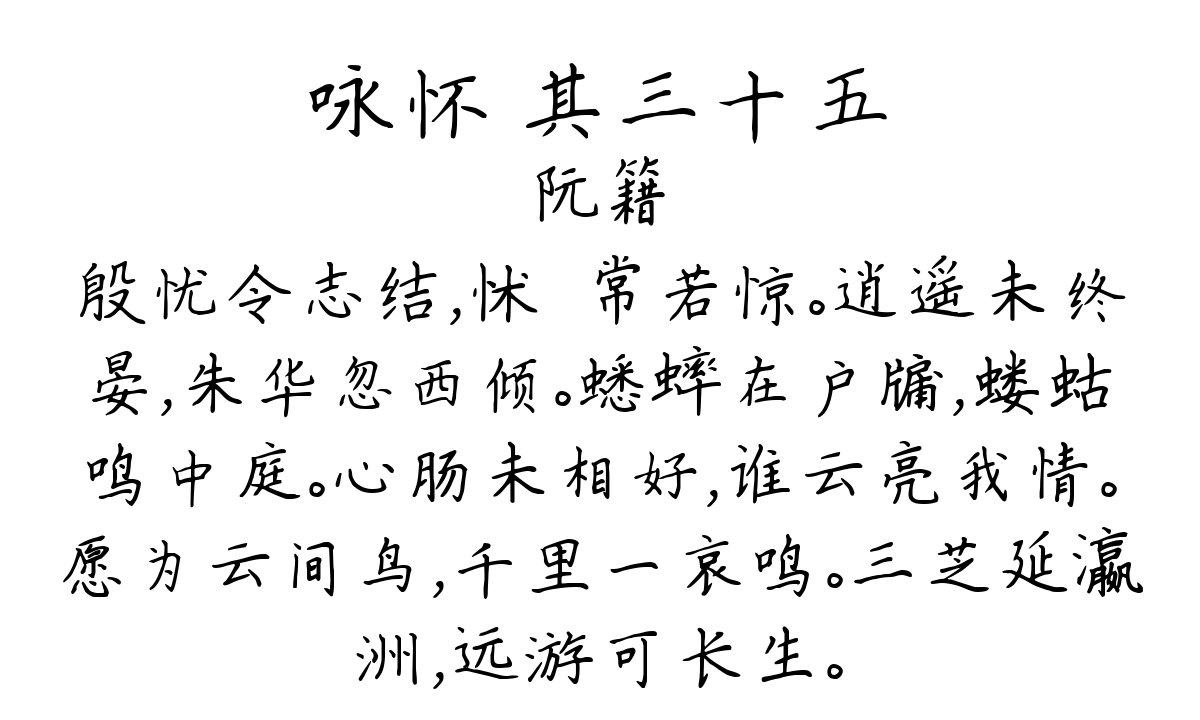 咏怀 其三十五
阮籍
殷忧令志结,怵 常若惊。逍遥未终
晏,朱华忽西倾。蟋蟀在户牖,蝼蛄
鸣中庭。心肠未相好,谁云亮我情。
愿为云间鸟,千里一哀鸣。三芝延瀛
洲,远游可长生。